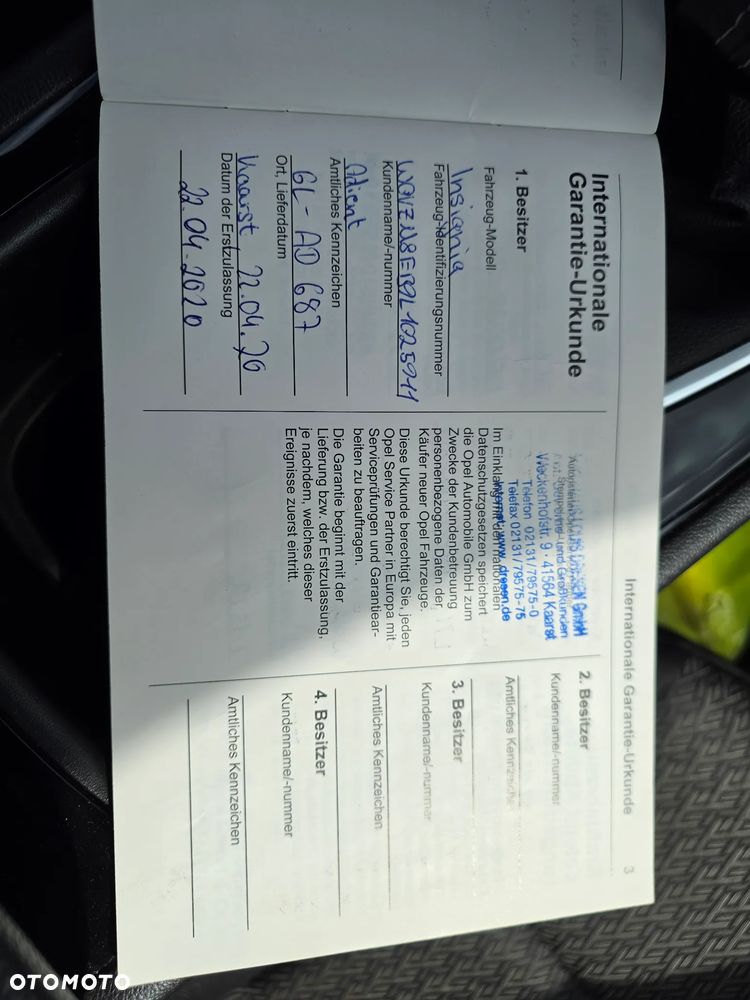 Internationale Garantie-Urkunde 3
Internationale
Garantie-Urkunde
1. Besitzer
Fahrzeug-Modell
Insignia
Fahrzeug-Identifizierungsnummer
Kundenname/-nummer
Adient
Amtliches Kennzeichen
GL-AD 687
Ort, Lieferdatum
Kaarst, 22.04.20
Datum der Erstzulassung
22.04.2020
Weckenhofstr. 9 · 41564 Kaarst
Telefon 02131/79575-0
Telefax 02131/79575-75
Internet: www. dresen.de
Im Einklang mit den nationalen
Datenschutzgesetzen speichert
die Opel Automobile GmbH zum
Zwecke der Kundenbetreuung
personenbezogene Daten der
Käufer neuer Opel Fahrzeuge.
Diese Urkunde berechtigt Sie, jeden
Opel Service Partner in Europa mit
Serviceprüfungen und Garantiear-
beiten zu beauftragen.
Die Garantie beginnt mit der
Lieferung bzw. der Erstzulassung,
je nachdem, welches dieser
Ereignisse zuerst eintritt.
2. Besitzer
Kundenname/-nummer
Amtliches Kennzeichen
3. Besitzer
Kundenname/-nummer
Amtliches Kennzeichen
4. Besitzer
Kundenname/-nummer
Amtliches Kennzeichen
OTOMOTO